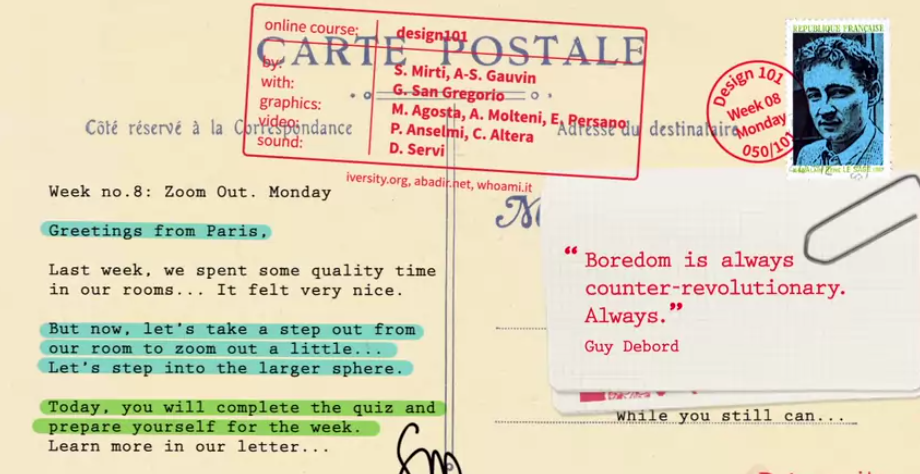 online course: design101
CARTE POSTALE
by: S. Mirti, A-S. Gauvin
with: G. San Gregorio
graphics: M. Agosta, A. Molteni, E. Persano
video: P. Anselmi, C. Altera
sound: D. Servi
iversity.org, abadir.net, whoami.it
Côté réservé à la Correspondance
Adresse du destinataire
Design 101
Week 08
Monday
050/101
REPUBLIQUE FRANÇAISE
Week no.8: Zoom Out. Monday
Greetings from Paris,
Last week, we spent some quality time
in our rooms... It felt very nice.
But now, let's take a step out from
our room to zoom out a little...
Let's step into the larger sphere.
Today, you will complete the quiz and
prepare yourself for the week.
Learn more in our letter...
“Boredom is always
counter-revolutionary.
Always.”
Guy Debord
While you still can...